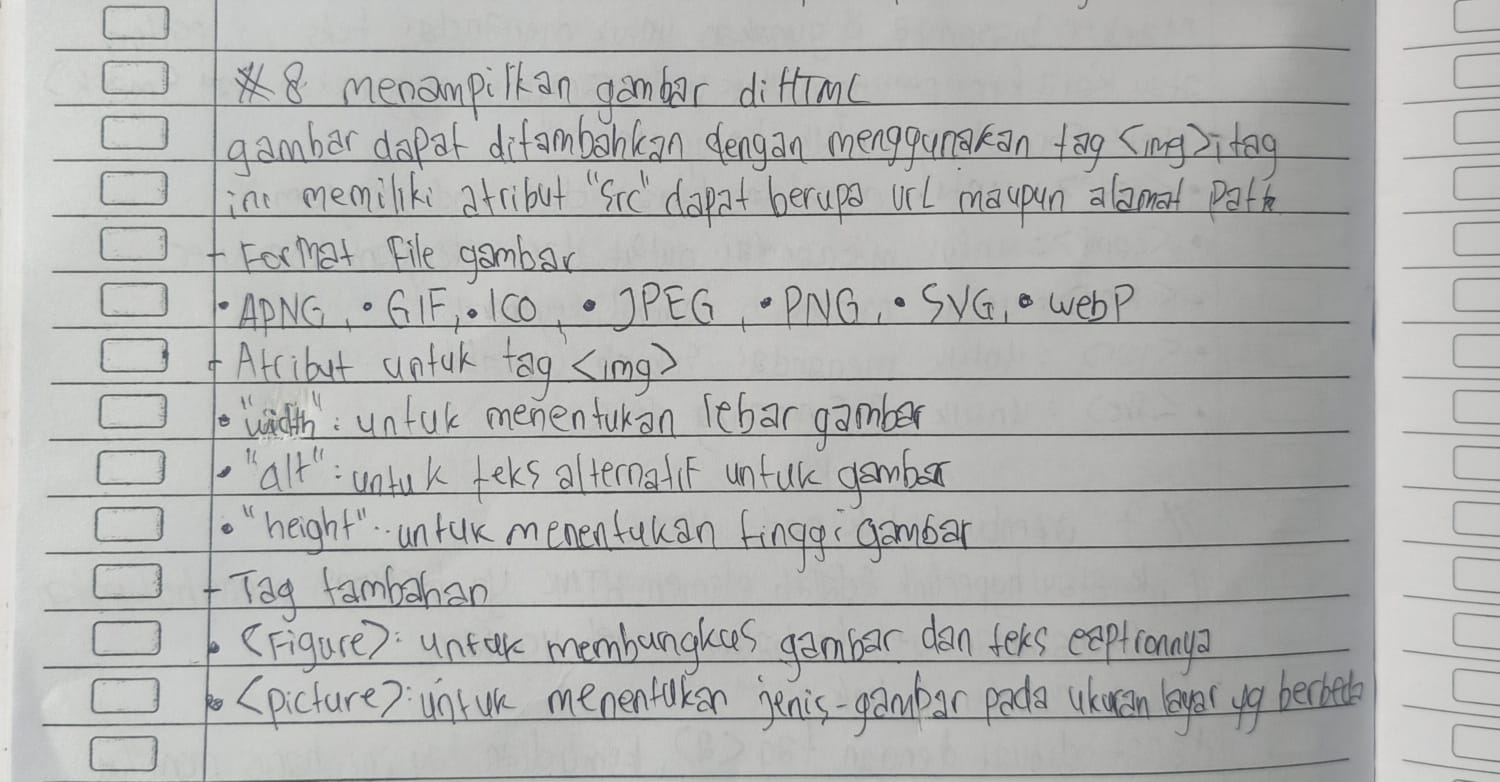 # 8 menampilkan gambar diHTML
gambar dapat ditambahkan dengan menggunakan tag <img>; tag
ini memiliki atribut "src" dapat berupa UrL maupun alamat Path
+ Format File gambar
• APNG, • GIF, • ICO, • JPEG, • PNG, • SVG, • webP
+ Atribut untuk tag <img>
• "width": untuk menentukan lebar gambar
• "alt": untuk teks alternatif untuk gambar
• "height": untuk menentukan tinggi gambar
+ Tag tambahan
• <Figure>: untuk membungkus gambar dan teks captionnya
• <picture>: untuk menentukan jenis-gambar pada ukuran layar yg berbeda